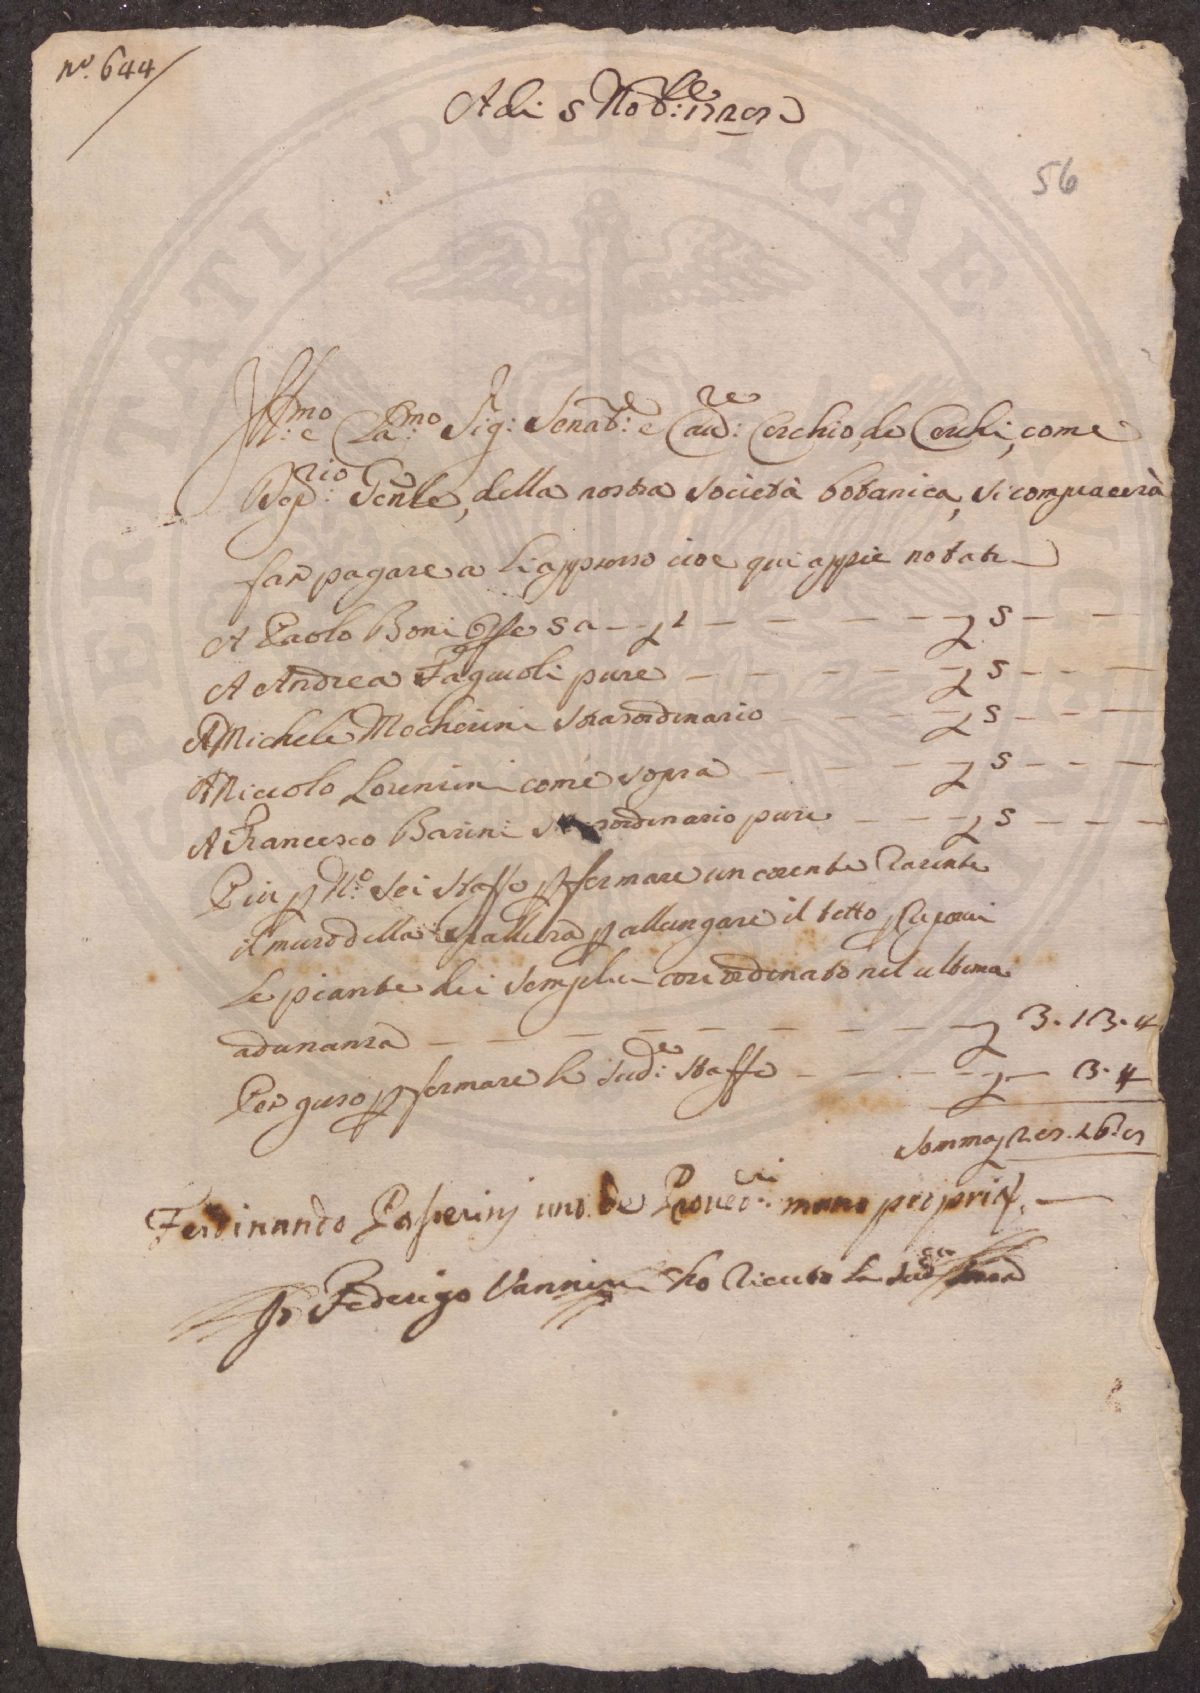 nº. 644
A di 5 Nobre: 1729
56
Illmo: e Clamo: Sig: Senatre: e Cavre: Cerchio, de Cerchi, come
Segrio: Genle, della nostra società botanica, si compiacerà
far pagare a li appresso cioe qui appie notati
A Paolo Boni 5
A Andrea Fagiuoli pure 5
A Michele Mecherini straordinario 5
A Niccolo Lorenzini come sopra 5
A Francesco Barini straordinario pure 5
Piu p Nº: sei staffe p fermare un corente rasente
il muro della p allungare il tetto p
le piante dei semplici cosi ordinato nel ultima
adunanza 3.13.4
Per geso p fermare le sude: staffe 3.4
Somma 29.16.9
Ferdinando Passerinj uno de Proveri: mano propria
Io Federigo Vannini ho riceuto la sudca